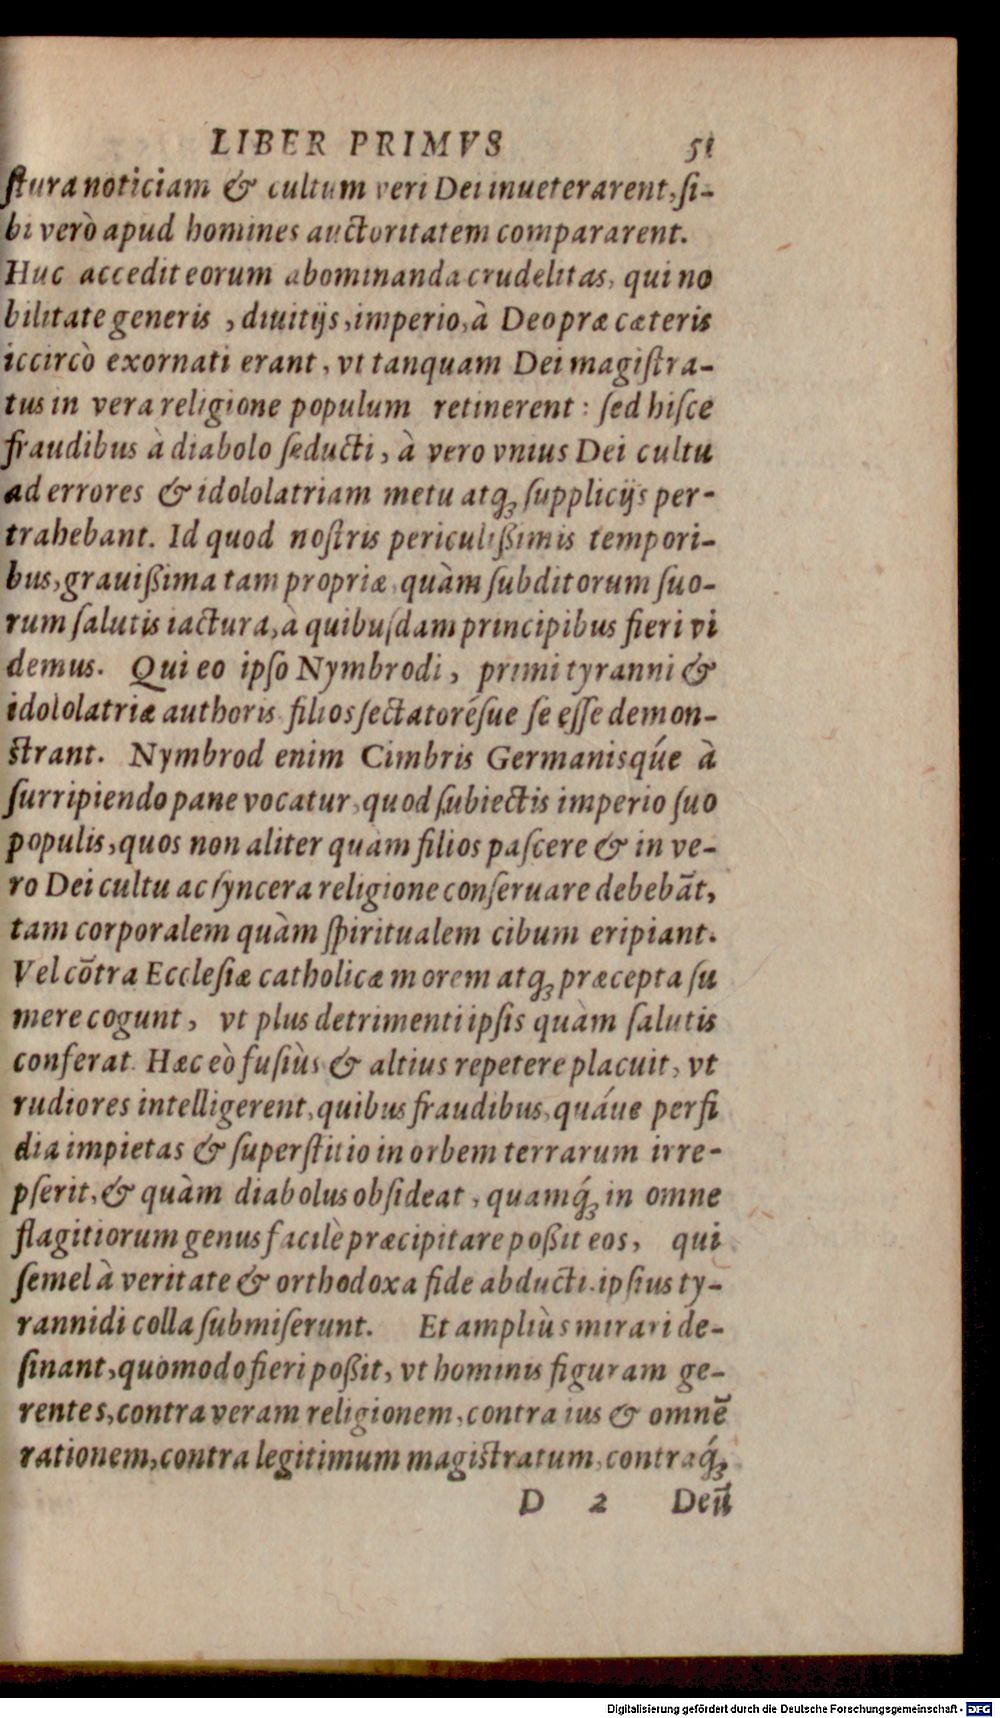 LIBER PRIMVS 51
ſtura noticiam & cultum veri Dei inueterarent, ſi-
bi verò apud homines auctoritatem compararent.
Huc accedit eorum abominanda crudelitas, qui no
bilitate generis , diuitijs, imperio, à Deo præ cæteris
iccircò exornati erant, vt tanquam Dei magiſtra-
tus in vera religione populum retinerent: ſed hiſce
fraudibus à diabolo ſeducti, à vero vnius Dei cultu
ad errores & idololatriam metu atq́ꝫ ſupplicijs per-
trahebant. Id quod noſtris periculißimis tempori-
bus, grauißima tam propriæ, quàm ſubditorum ſuo-
rum ſalutis iactura, à quibuſdam principibus fieri vi
demus. Qui eo ipſo Nymbrodi, primi tyranni &
idololatriæ authoris filios ſectatoréſue ſe eſſe demon-
ſtrant. Nymbrod enim Cimbris Germanisq́ue à
ſurripiendo pane vocatur, quod ſubiectis imperio ſuo
populis, quos non aliter quàm filios paſcere & in ve-
ro Dei cultu ac ſyncera religione conſeruare debebāt,
tam corporalem quàm ſpiritualem cibum eripiant.
Vel cōtra Eccleſiæ catholicæ morem atqꝫ præcepta ſu
mere cogunt, vt plus detrimenti ipſis quàm ſalutis
conferat. Hæc eò fuſiùs & altius repetere placuit, vt
rudiores intelligerent, quibus fraudibus, quáue perfi
dia impietas & ſuperſtitio in orbem terrarum irre-
pſerit, & quàm diabolus obſideat, quamq́ꝫ in omne
flagitiorum genus facilè præcipitare poßit eos, qui
ſemel à veritate & orthodoxa fide abducti ipſius ty-
rannidi colla ſubmiſerunt. Et ampliùs mirari de-
ſinant, quomodo fieri poßit, vt hominis figuram ge-
rentes, contra veram religionem, contra ius & omnē
rationem, contra legitimum magiſtratum, contraq́ꝫ
D 2 Deū
Digitalisierung gefördert durch die Deutsche Forschungsgemeinschaft - DFG